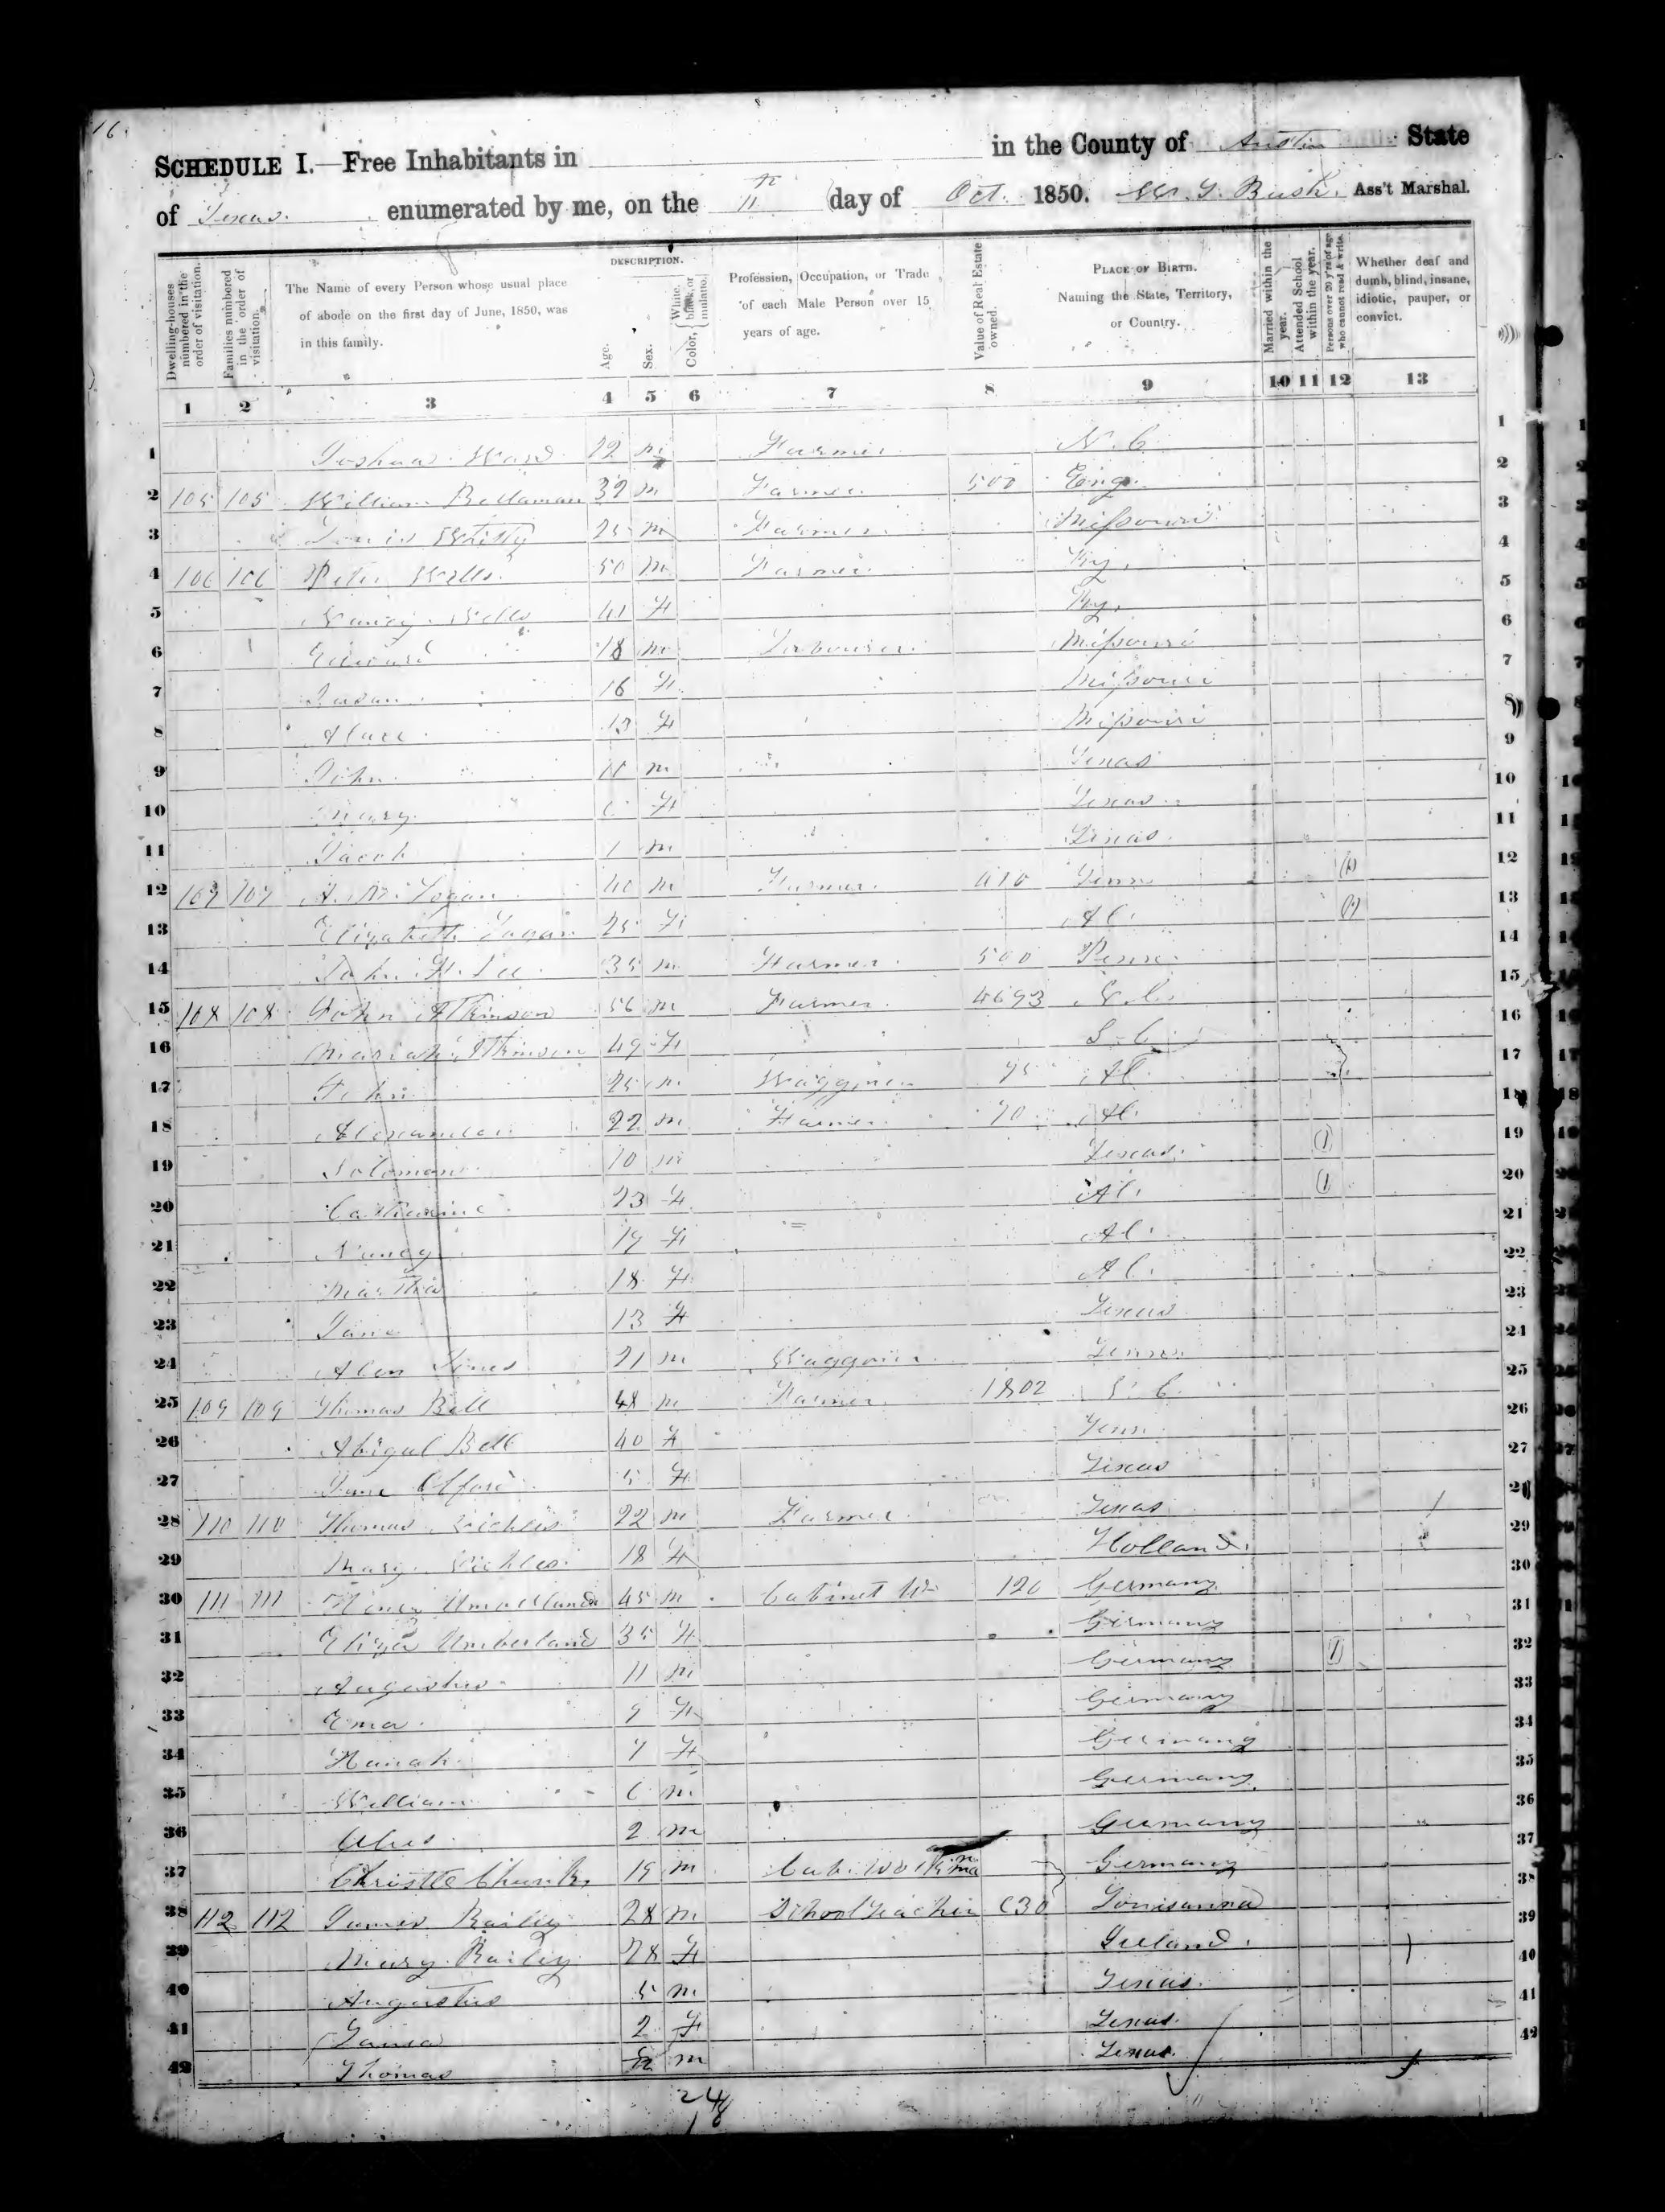 16.
SCHEDULE I.—Free Inhabitants in in the County of Austin State
of Texas. enumerated by me, on the 11 day of Oct. 1850. W. Bush. Ass't Marshal.
Dwelling-houses numbered in the order of visitation.
Families numbered in the order of visitation.
The Name of every Person whose usual place of abode on the first day of June, 1850, was in this family.
DESCRIPTION.
Age.
Sex.
Color, { White, black, or mulatto.
Profession, Occupation, or Trade of each Male Person over 15 years of age.
Value of Real Estate owned.
PLACE OF BIRTH. Naming the State, Territory, or Country.
Married within the year.
Attended School within the year.
Persons over 20 y'rs of age who cannot read & write.
Whether deaf and dumb, blind, insane, idiotic, pauper, or convict.
1 2 3 4 5 6 7 8 9 10 11 12 13
1 Joshua Ward 22 m Farmer N. C. 1
2 105 105 William Bellaman 32 m Farmer 500 Eng. 2
3 Whitty 25 m Farmer Missouri 3
4 106 106 Peter Wells 50 m Farmer Ky. 4
5 Nancy Wells 41 F Ky. 5
6 Edward 18 m Labourer Missouri 6
7 Susan 16 F Missouri 7
8 13 F Missouri 8
9 John m Texas 9
10 Mary 6 F Texas 10
11 Jacob 1 m Texas 11
12 107 107 A. M. Logan 40 m Farmer 410 Tenn 12
13 Elizabeth Logan 25 F Al. 13
14 John H. Lee 35 m Farmer 500 Penn. 14
15 108 108 John Atkinson 56 m Farmer 4693 N. C. 15
16 Mariah Atkinson 49 F S. C. 16
17 John 25 m Waggoner 75 Al. 17
18 Alexander 22 m Farmer 70 Al. 18
19 Solomon 10 m Texas. 19
20 Catharine 23 F Al. 20
21 Nancy 19 F Al. 21
22 Martha 18 F Al. 22
23 Jane 13 F Texas 23
24 Jones 21 m Waggoner Tenn. 24
25 109 109 Thomas Bell 48 m Farmer 1802 S. C. 25
26 Abigal Bell 40 F Tenn 26
27 Jane Alford 5 F Texas 27
28 110 110 Thomas 22 m Farmer Texas 28
29 Mary 18 F Holland. 29
30 111 111 Henry 45 m Cabinet W 120 Germany 30
31 Eliza Umberland 35 F Germany 31
32 Augustus 11 m Germany 32
33 Ema 9 F Germany 33
34 Hanah 7 F Germany 34
35 William 6 m Germany 35
36 2 m Germany 36
37 Christle 19 m Cab. Workman Germany 37
38 112 112 James Bailey 28 m School Teacher 630 Louisanna 38
39 Mary Bailey 28 F Ireland. 39
40 Augustus 5 m Texas. 40
41 2 F Texas. 41
42 Thomas m Texas. 42